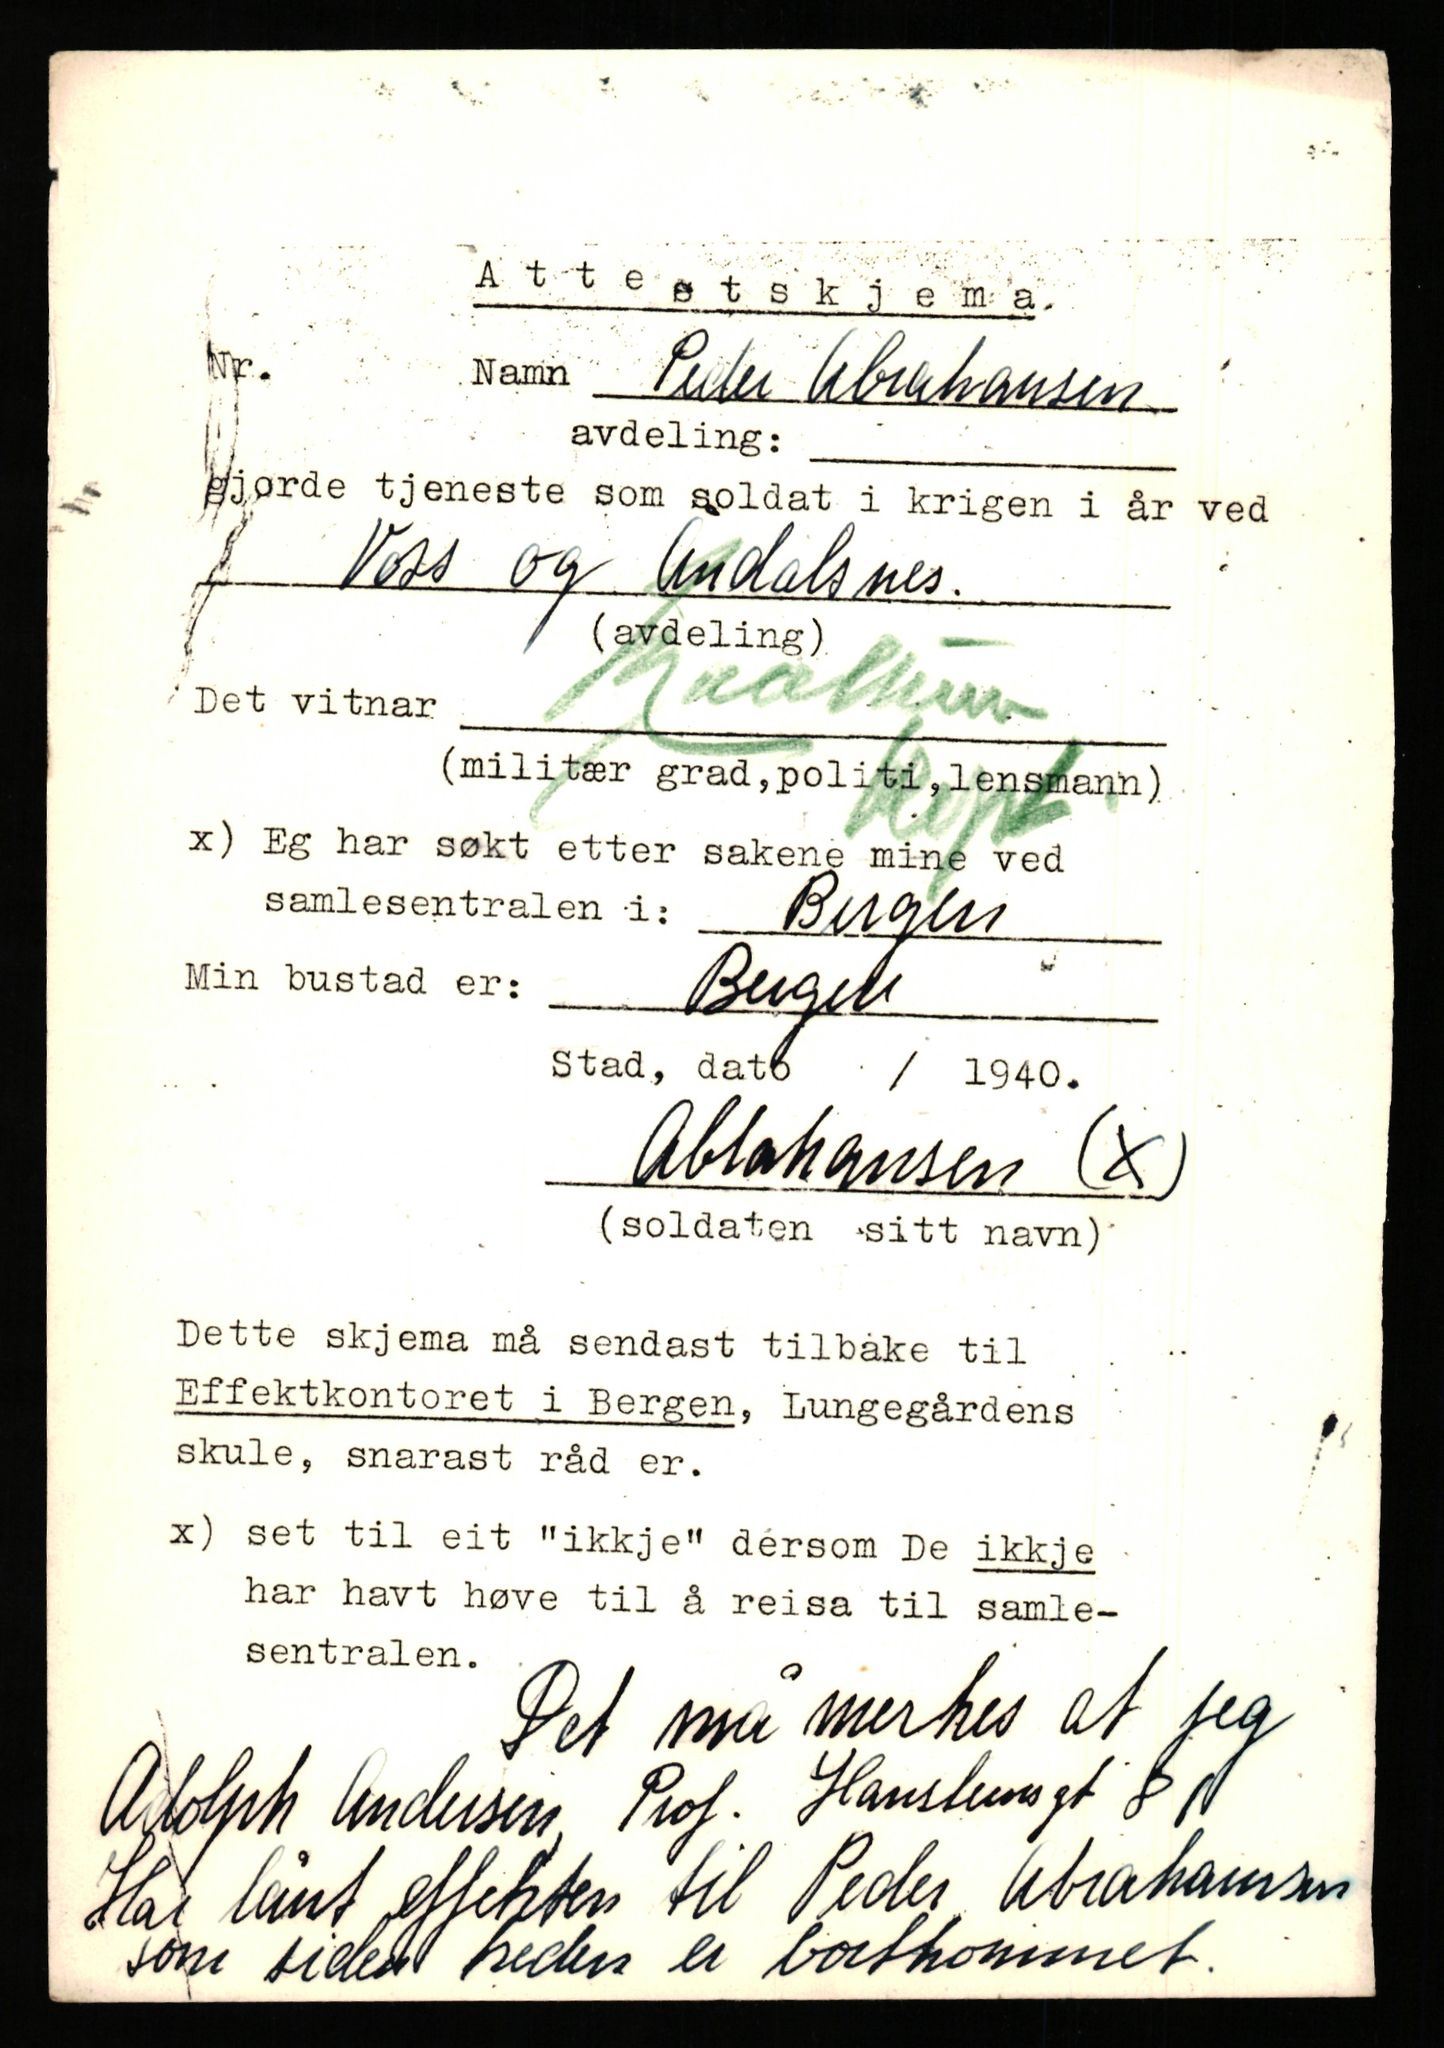 Attestskjema.
Nr. Namn Peder Abrahansen
avdeling:
gjorde tjeneste som soldat i krigen i år ved
Voss og Åndalsnes.
(avdeling)
Det vitnar
(militær grad,politi,lensmann)
Kapt
x) Eg har søkt etter sakene mine ved
samlesentralen i: Bergen
Min bustad er: Bergen
Stad, dato / 1940.
Abrahansen (X)
(soldaten sitt navn)
Dette skjema må sendast tilbake til
Effektkontoret i Bergen, Lungegårdens
skule, snarast råd er.
x) set til eit "ikkje" dersom De ikkje
har havt høve til å reisa til samle-
sentralen.
Det må merkes at jeg
Adolph Andersen, Prof. Hansteensgt 81
Har lånt effekten til Peder Abrahansen
som siden heden er bortkommet.